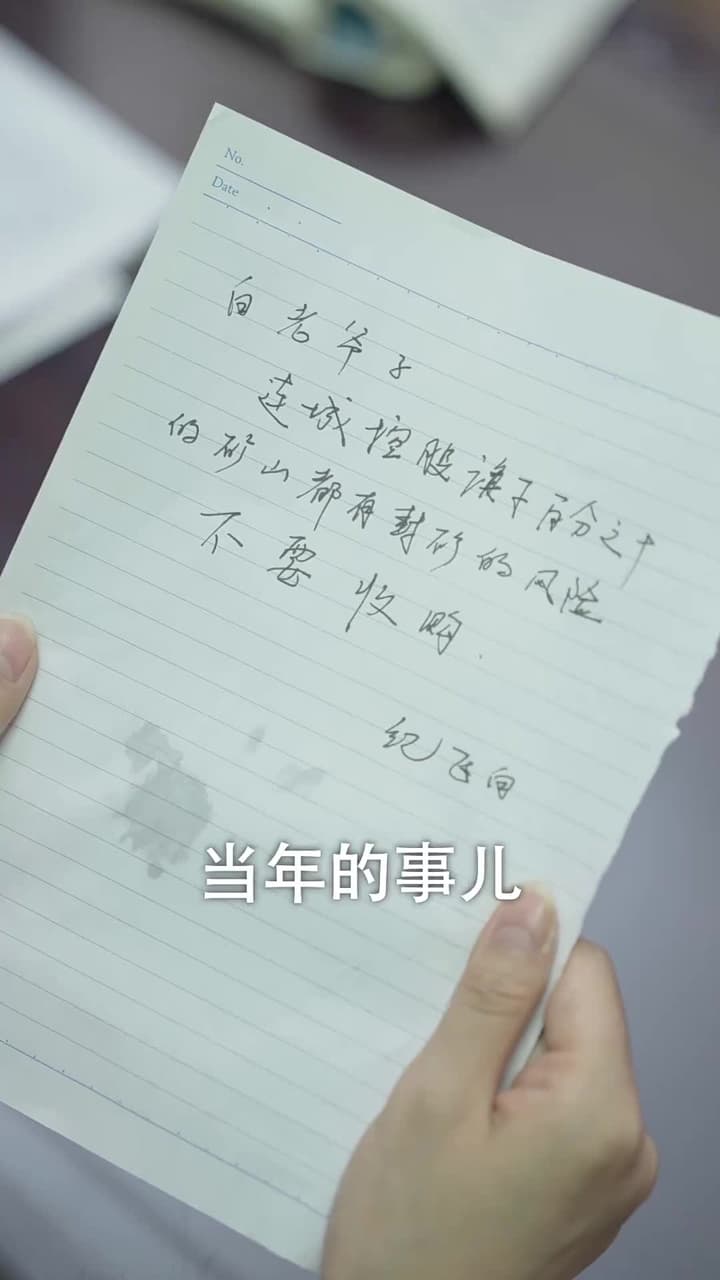 No.
Date
白老爷子
连城控股旗下百分之十
的矿山都有封矿的风险
不要收购.
纪飞向
当年的事儿